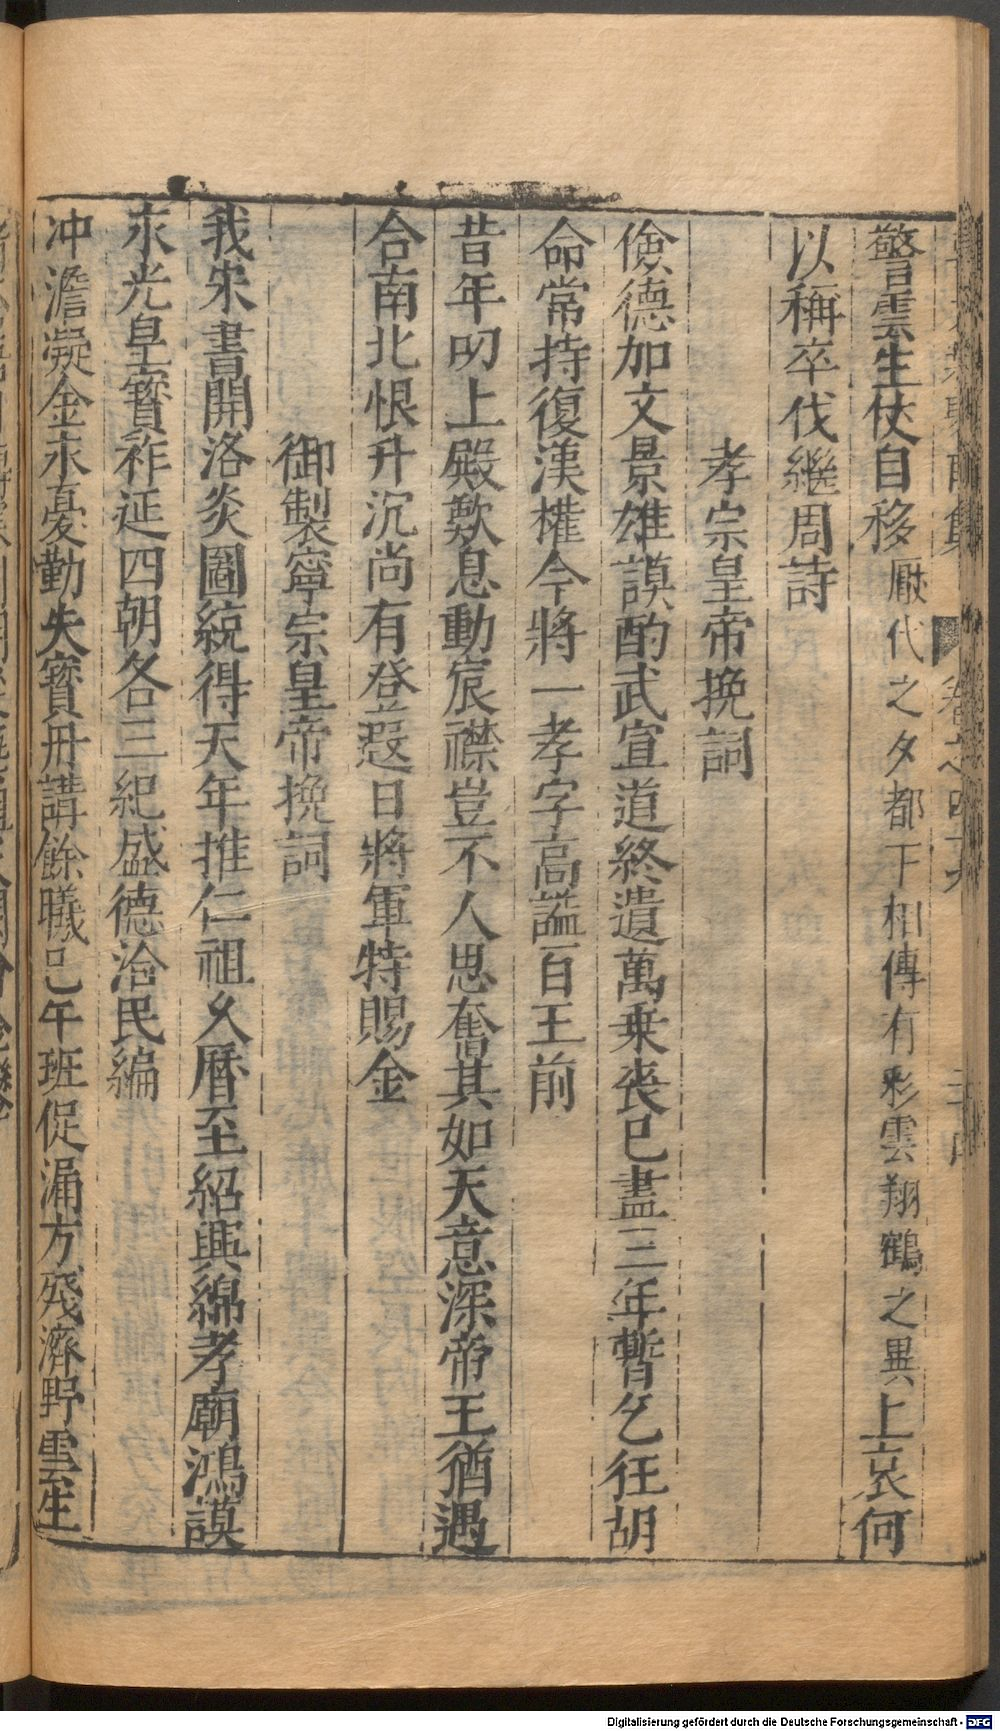 警雲生仗自移厭代之夕都下相傳有彩雲翔鶴之異上哀何
以稱卒伐繼周詩
孝宗皇帝挽詞
儉德加文景雄謨酌武宣道終遺萬乗丧已盡三年暫乞徃胡
命常持復漢權今將一孝字高謚百王前
昔年叨上殿歎息動宸襟豈不人思奮其如天意深帝王猶遇
合南北恨升沉尚有登遐日將軍特賜金
御製寧宗皇帝挽詞
我宋書開洛炎圖統得天年推仁祖乆曆至紹興綿孝廟鴻謨
永光皇寳祚延四朝各三紀盛德洽民編
冲澹凝金永憂勤失寳冊講餘曦已午班促漏方殘濟野雲生
Digitalisierung gefördert durch die Deutsche Forschungsgemeinschaft - DFG